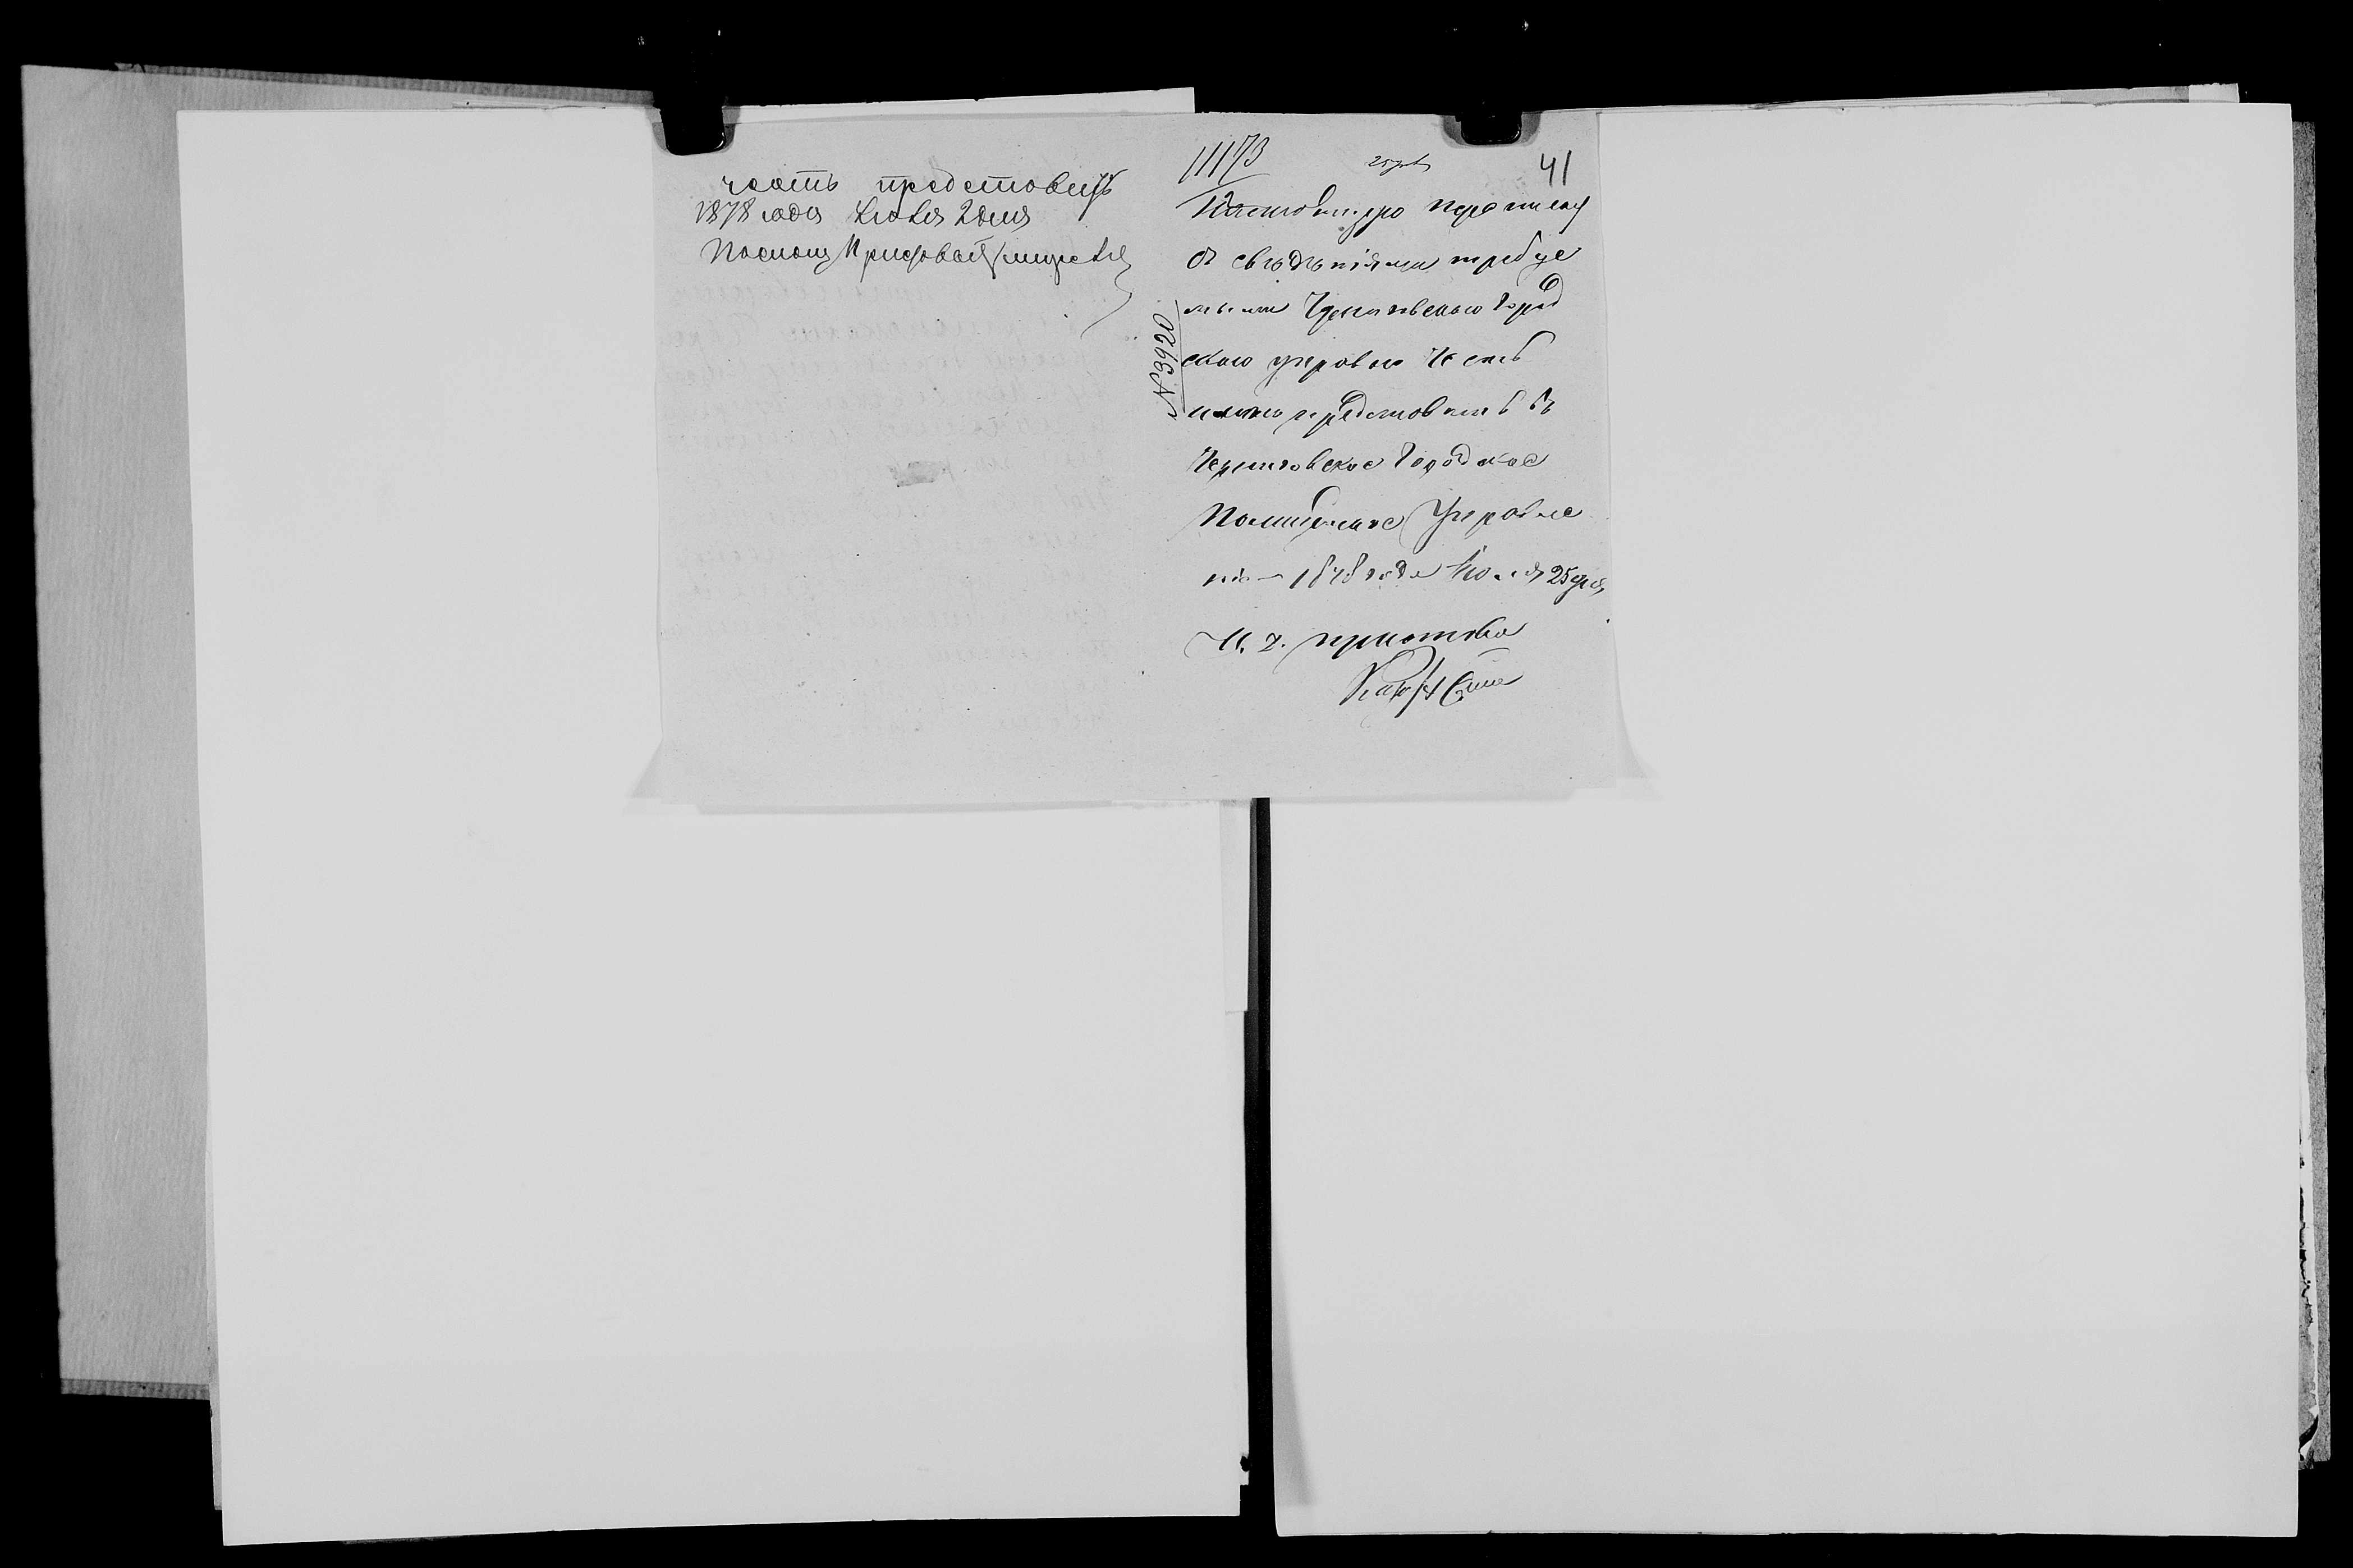 честь представить
1878 года Июля 2 дня
Помощ. Пристава
11173
41
Настоящую переписку
съ свѣдѣніями требуе
мыми Черниговскою Город
скою управою честь
имѣю представить въ
Черниговское Городское
Полицейское Управле
ніе 1878 года Июля 25 дня
И. д. пристава
№ 3920